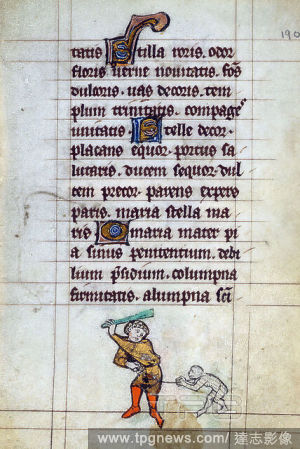 190
tatis. Stilla roris. odor
floris. uerne nouitatis. fōs
dulcoris. uas decoris. tem
plum trinitatis. compage
unitatis. Stelle decor.
placans equor. portus sa
lutaris. ducem sequor. dul
cem precor. parens expers
paris. maria stella ma
ris. O maria mater pi
a sinus penitentium. debi
lium p̄sidium. columpna
firmitatis. alumpna sc̄i
www.tpgnews.com/達志影像